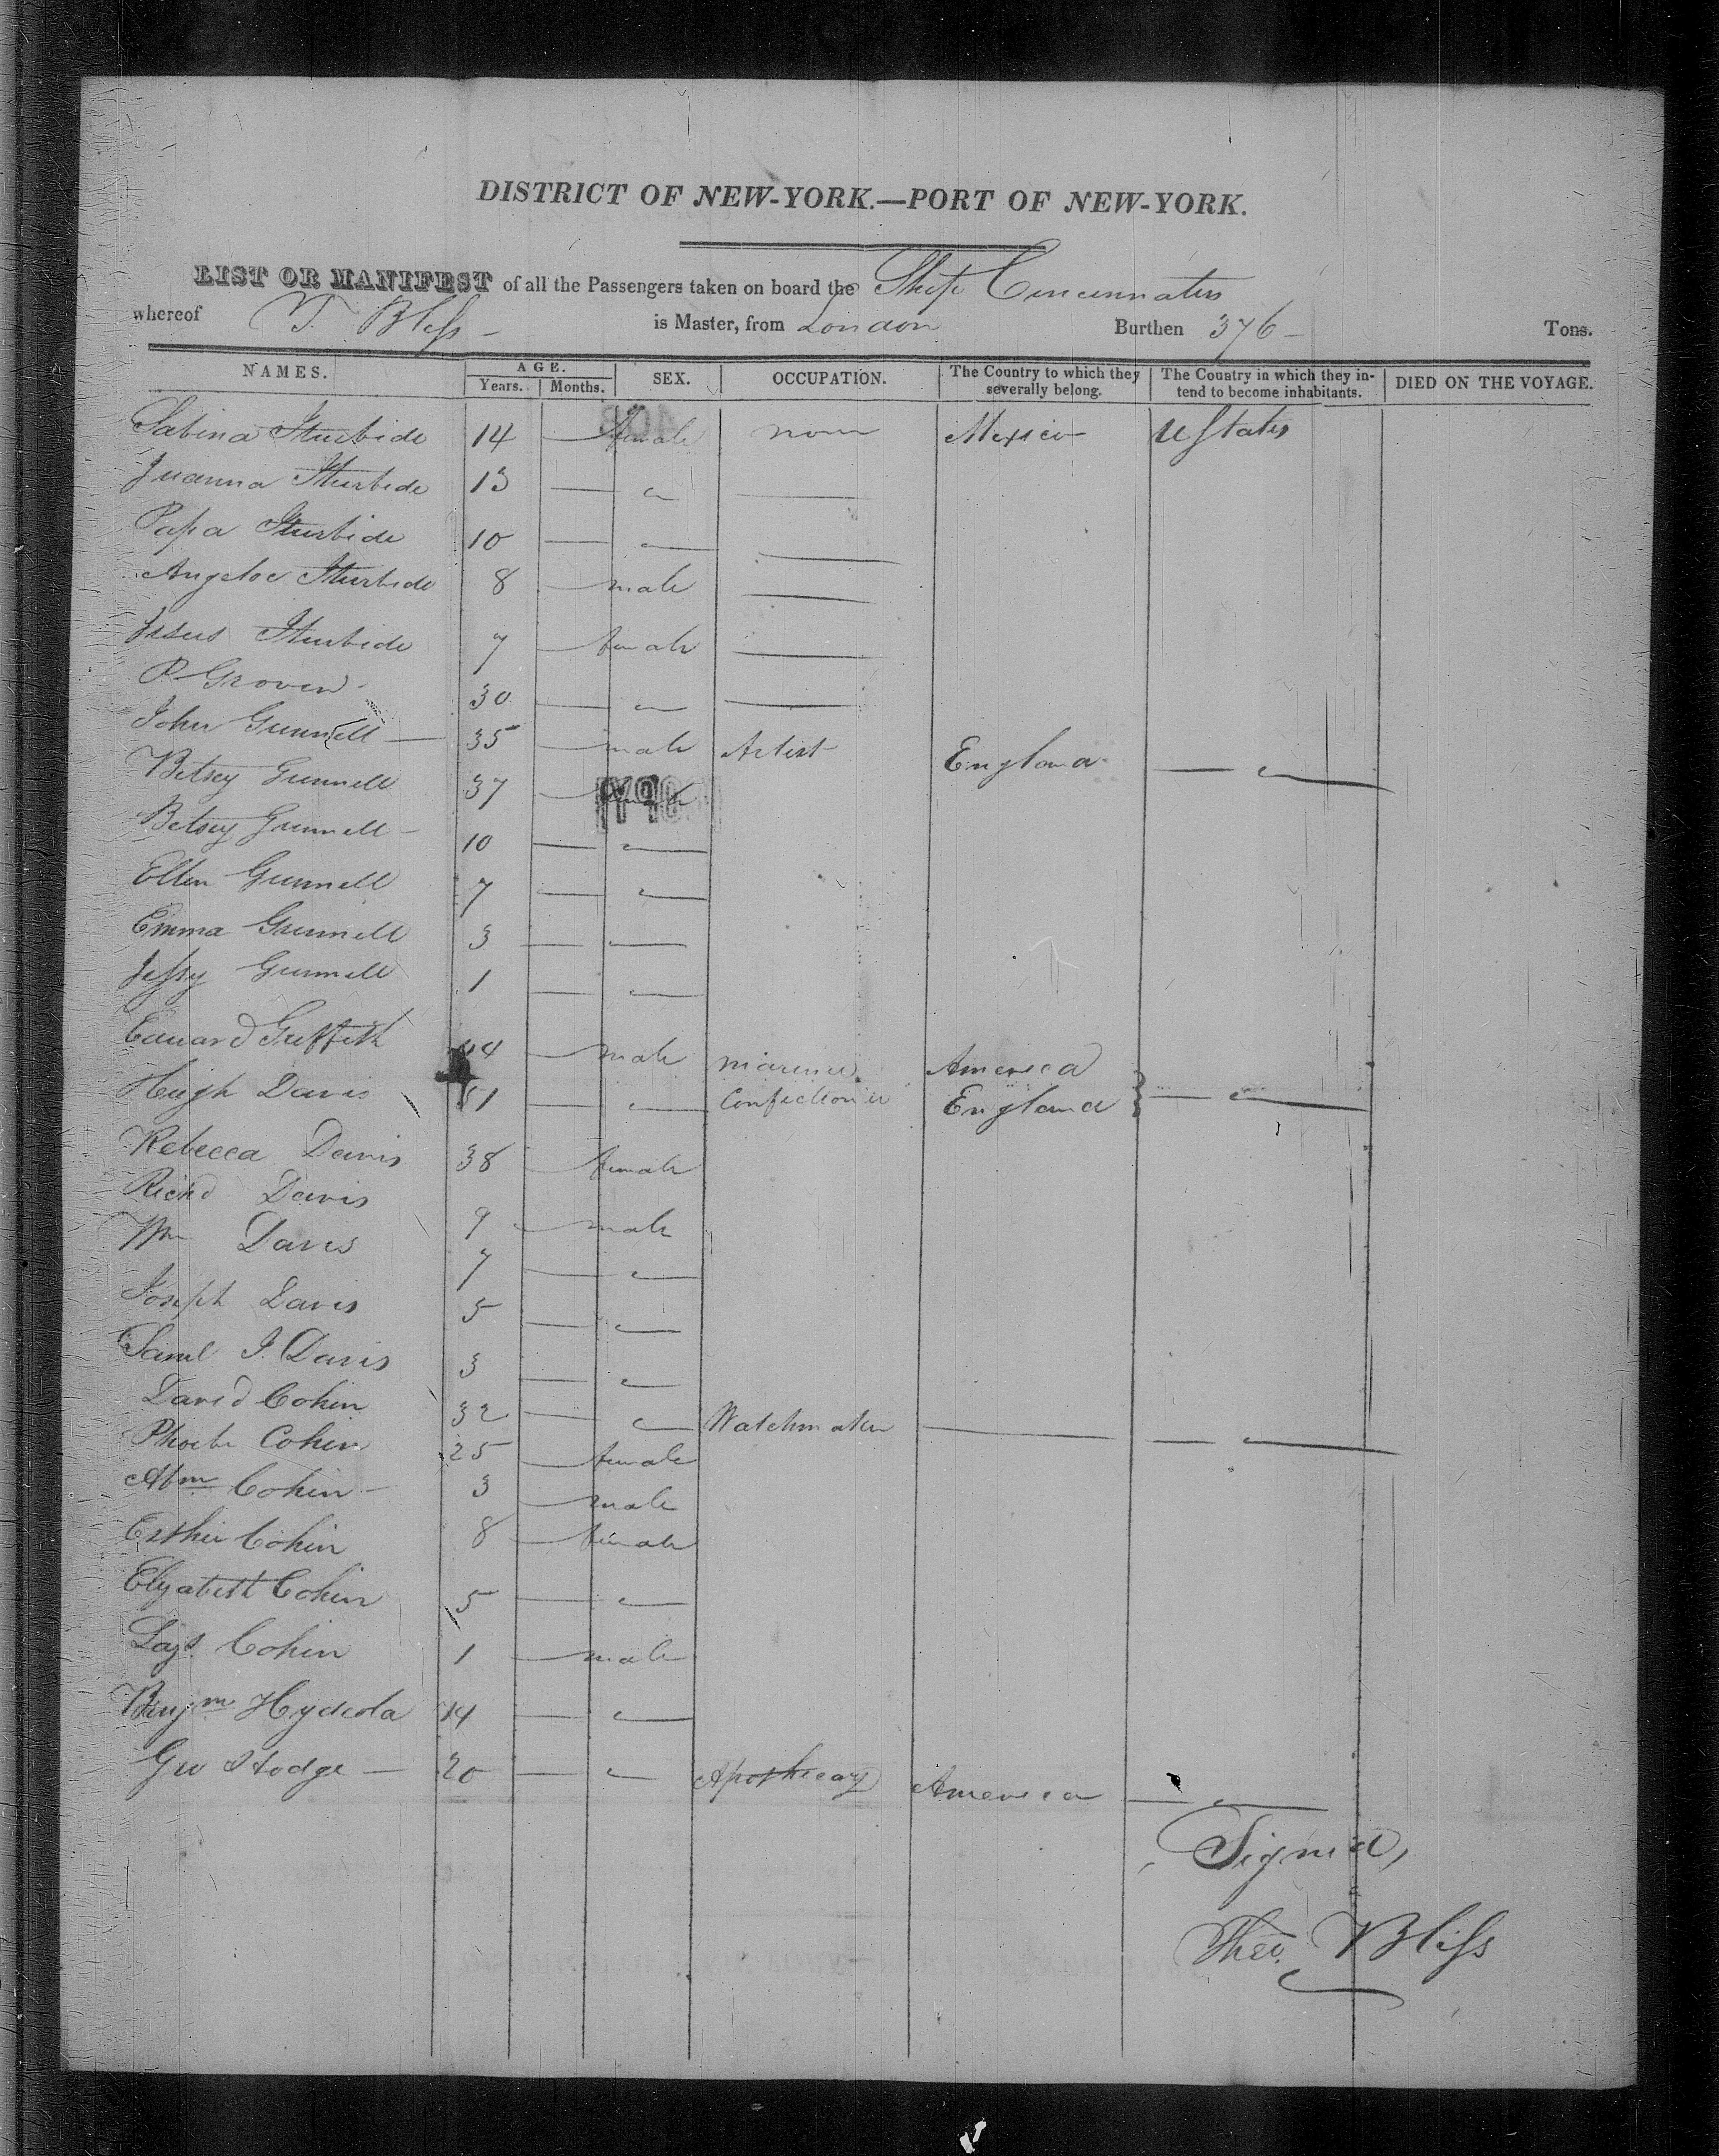 DISTRICT OF NEW-YORK.—PORT OF NEW-YORK.
LIST OR MANIFEST of all the Passengers taken on board the Ship Cincinnatus
whereof T. Bliss - is Master, from London Burthen 376 - Tons.
NAMES. AGE. Years. Months. SEX. OCCUPATION. The Country to which they severally belong. The Country in which they intend to become inhabitants. DIED ON THE VOYAGE.
Sabina Iturbide 14 — female none Mexico U States
Juanna Iturbide 13 — " —
Papa Iturbide 10 — " —
Angeloe Iturbide 8 — male —
Jesus Iturbide 7 — female —
P 30 — " —
John Gunnell — 35 — male Artist England — "
Betsey Gunnell 37 — female
Betsey Gunnell - 10 — "
Ellen Gunnell 7 — "
Emma Gunnell 3 — "
Jessy Gunnell 1 — "
Edward Griffith 44 — male Mariner America
Hugh Davis — " Confectioner England } — "
Rebecca Davis 38 — female
Richd Davis 9 — male
Wm Davis 7 — "
Joseph Davis 5 — "
Saml I. Davis 3 — "
David Cohen 32 — " Watchmaker — — "
Phoebe Cohen 25 — female
Abm Cohen - 3 — male
Esther Cohen 8 — female
Elizabeth Cohen 5 — "
Cohen 1 — male
Benjm 14 — "
Geo Hodge — 20 — " Apothecary America — "
Signed,
Theo. Bliss